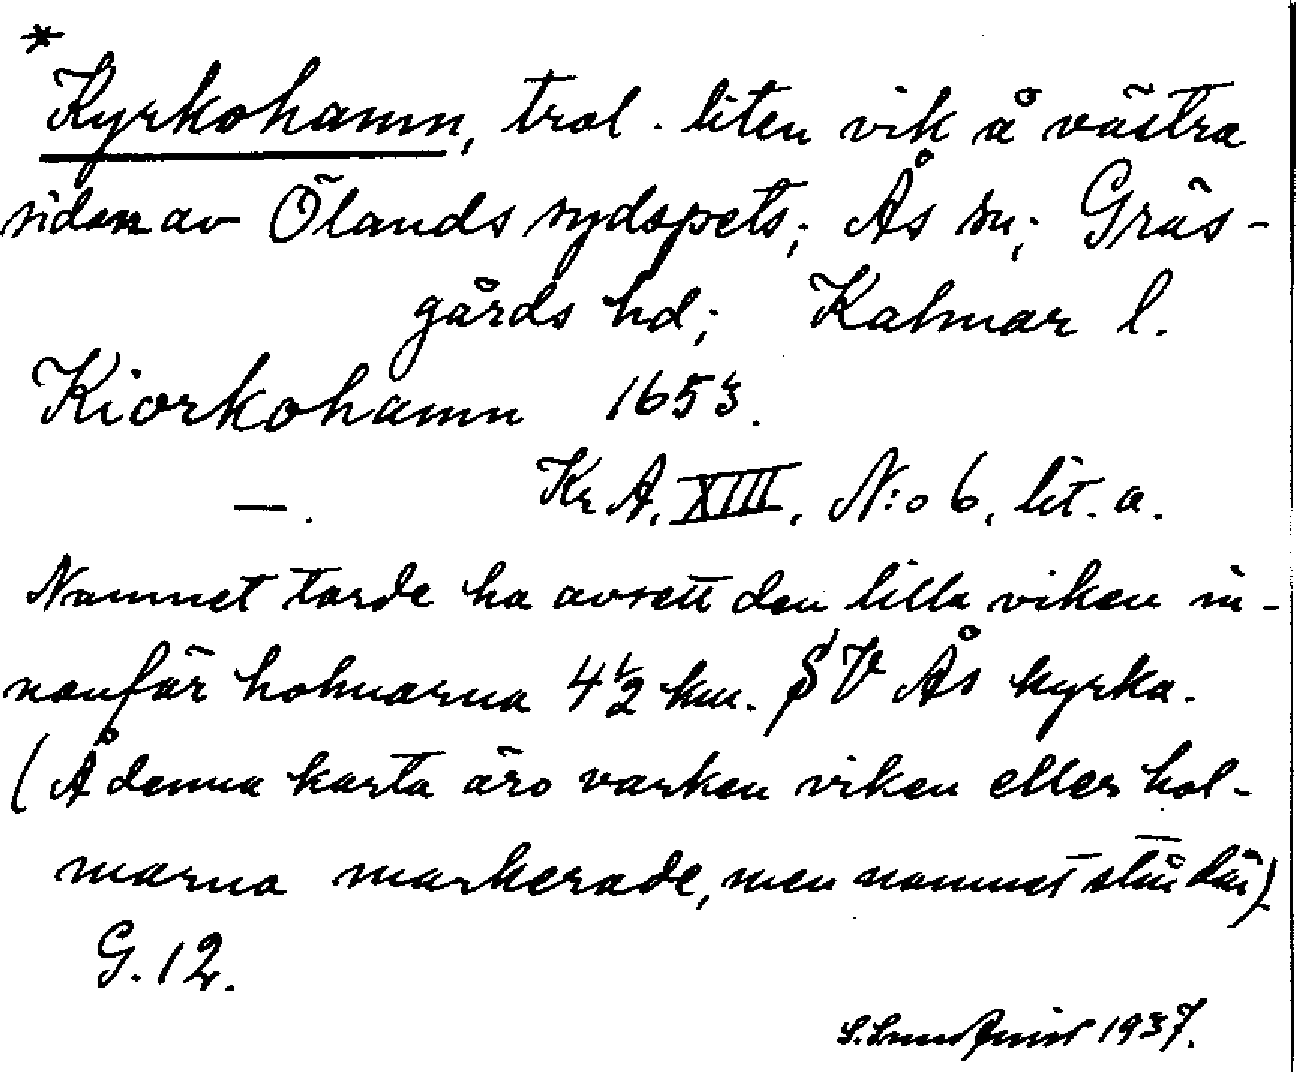 *
Kyrkohamn, trol. liten vik å västra
sidan av Ölands sydspets; Ås sn; Gräs-
gårds hd; Kalmar l.
Kiorkohamn 1653.
—. Kr A. XIII, N:o 6, lit. a.
Namnet torde ha avsett den lilla viken in-
nanför holmarna 4 1/2 km. V Ås kyrka.
(Å denna karta äro varken viken eller hol-
marna markerade, men namnet står där)
G. 12.
1937.